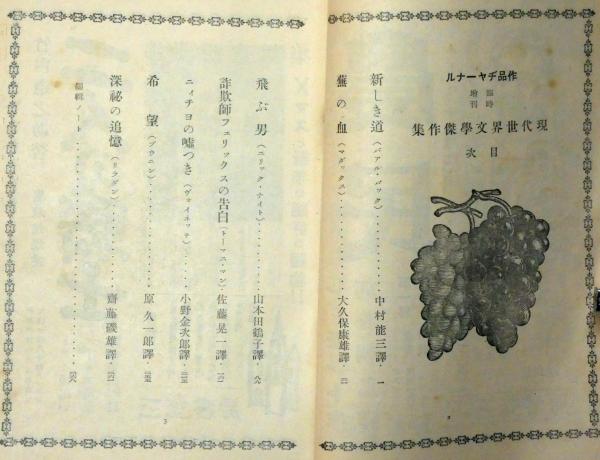 ルナーヤヂ品作
臨時
増刊
集作傑學文界世代現
次目
新しき道(パアル・バック)・・・・・・・・・・中村能三譯・一
蕪の血(マダックス)・・・・・・・・・・大久保康雄譯・
飛ぶ男(エリック・ナイト)・・・・・・・・・・山本田鶴子譯・
詐欺師フェリックスの告白(トーマス・マン)・佐藤晃一譯・
ニィチョの嘘つき(ヴォイネッチ)・・・・小野金次郎譯・
希望(ブウニン)・・・・・・・・・・原久一郎譯・
深秘の追憶(リラダン)・・・・・・・・・・齋藤磯雄譯・
編輯ノート・・・・・・・・・・
3